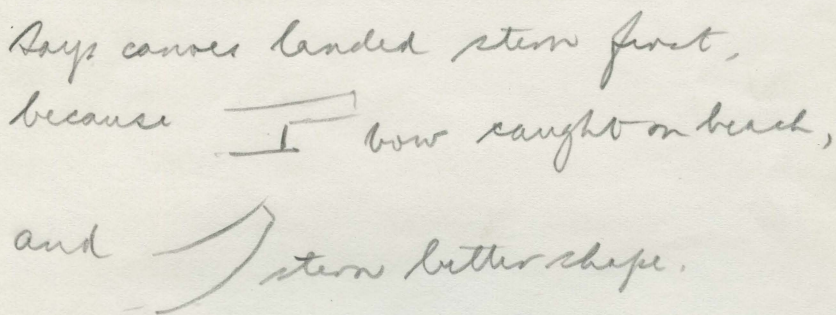 Says canoes landed stern first,
because bow caught on beach,
and stern better shape.